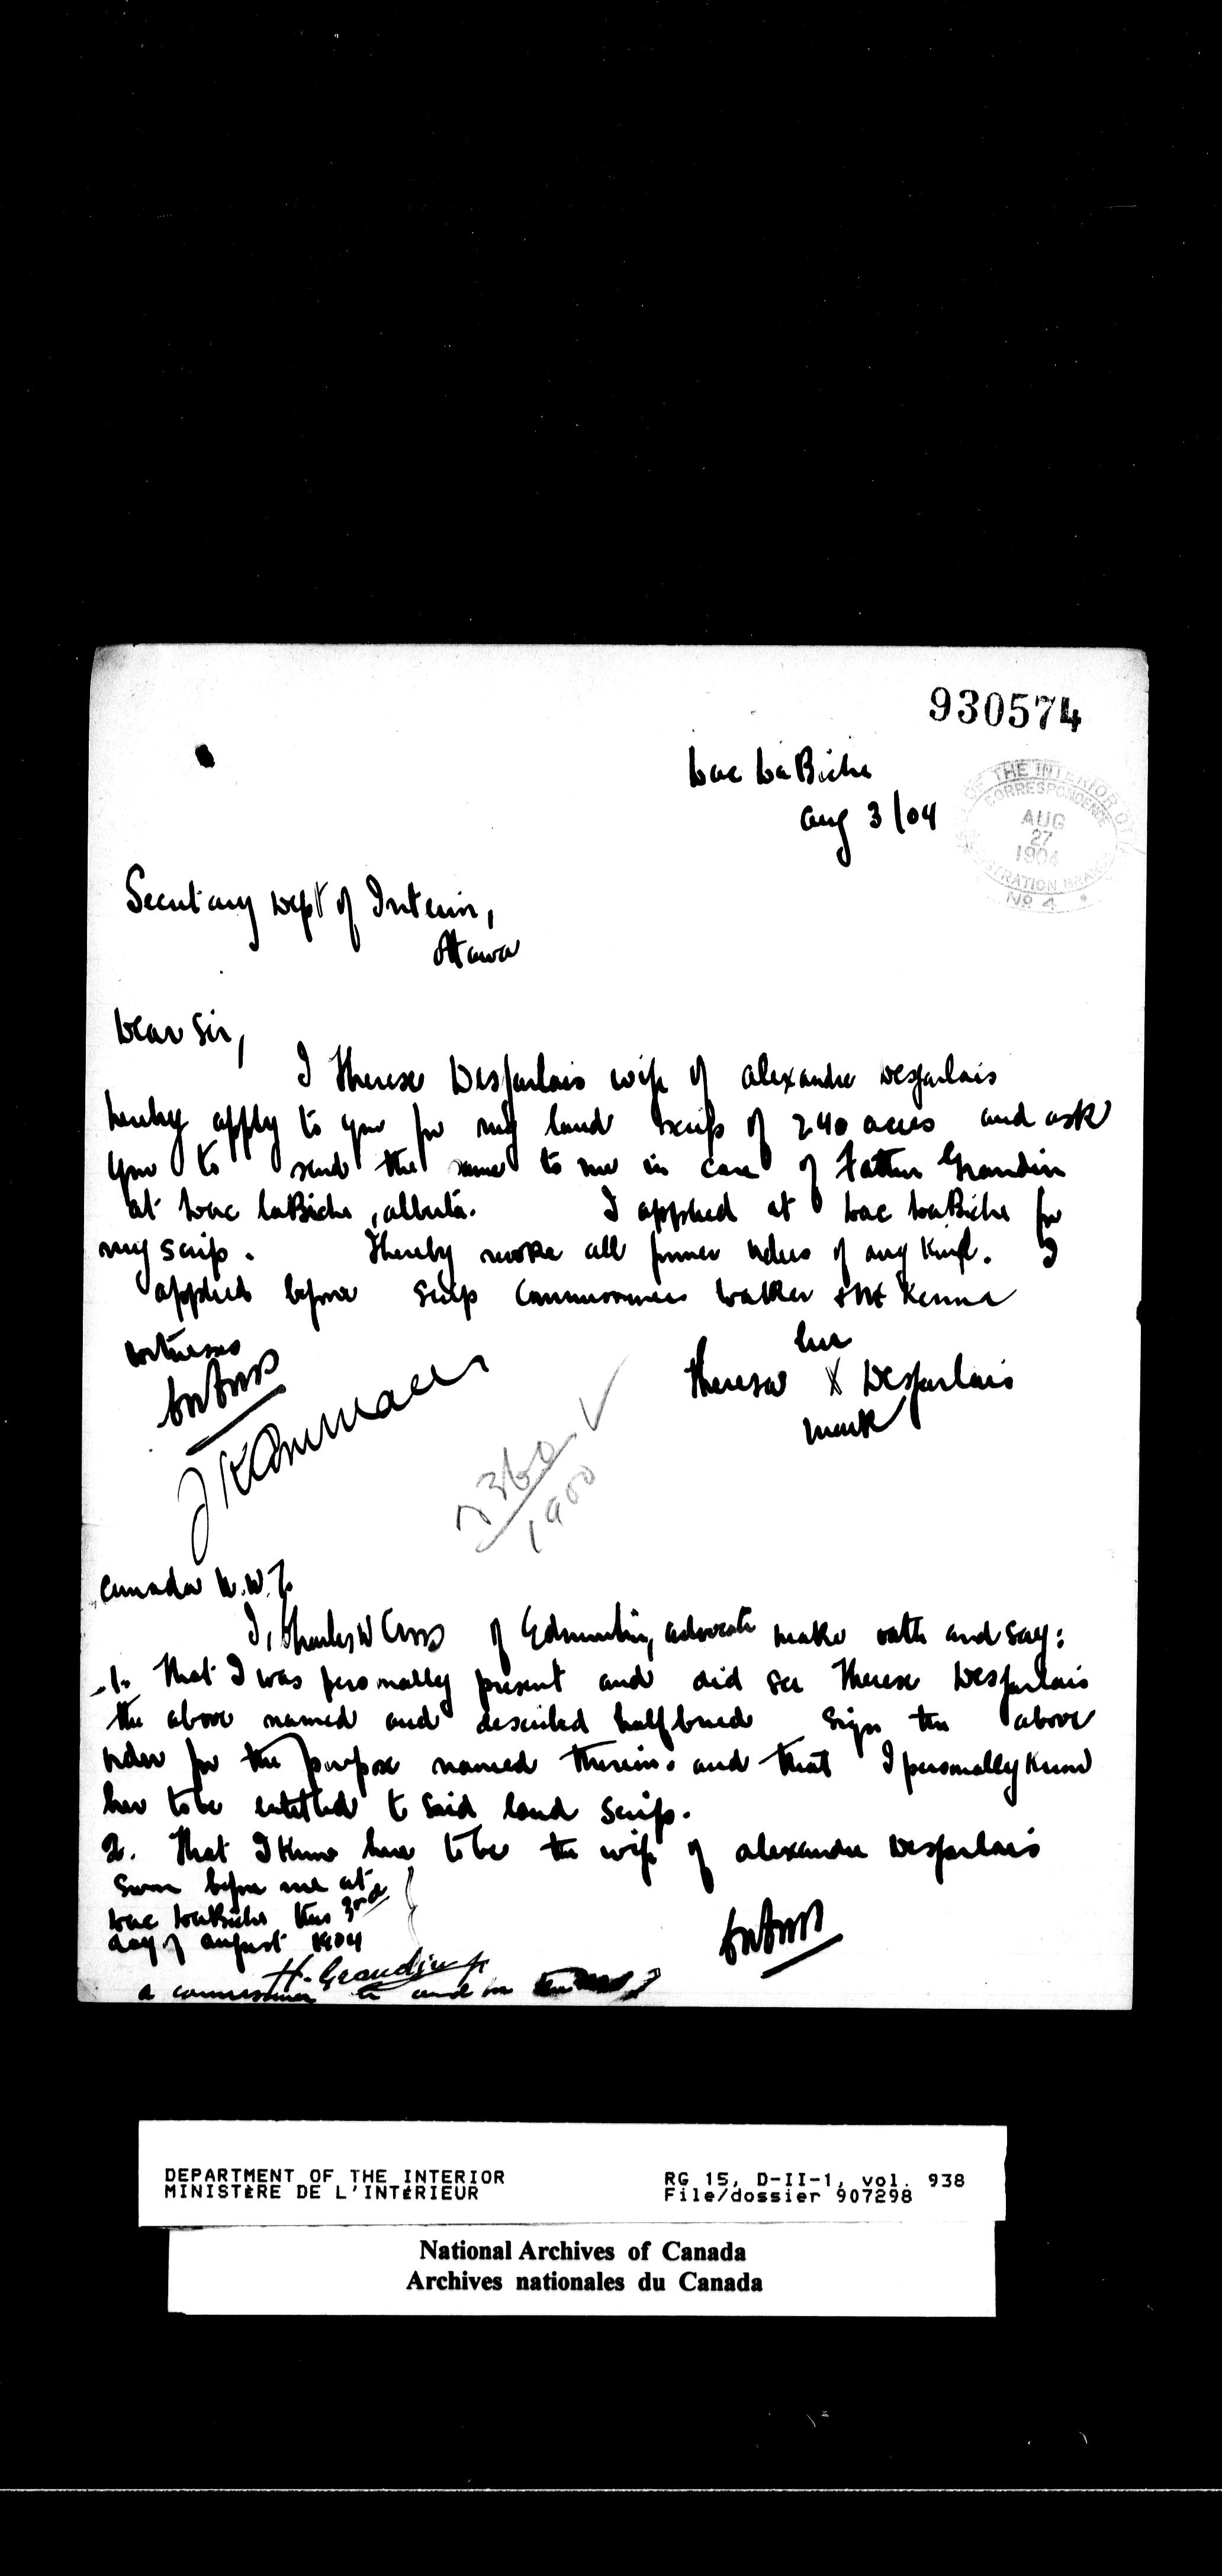 930574
Lac LaBiche
Aug 3/04
OF THE INTERIOR OT
CORRESPONDENCE
AUG
27
1904
REGISTRATION BRANCH
No 4
Secretary Dept of Interior,
Ottawa
Dear Sir,
I Therese Desjarlais wife of Alexandre Desjarlais
hereby apply to you for my land scrip of 240 acres and ask
you to send the same to me in care of Father Grandin
at Lac LaBiche, Alberta. I applied at Lac LaBiche for
my scrip. I hereby revoke all former orders of any kind. I
applied before Scrip Commissioners Walker & McKenna
Witnesses
her
Theresa X Desjarlais
mark
CW Cross
2360
1900
Canada N.W.T.
I, Charles W Cross of Edmonton, advocate make oath and say:
1. That I was personally present and did see Therese Desjarlais
the above named and described halfbreed sign the above
order for the purpose named therein. and that I personally know
her to be entitled to said land scrip.
2. That I know her to be the wife of Alexandre Desjarlais
Sworn before me at
Lac LaBiche this 3rd
day of August 1904
CW Cross
H. Grandin
a commissioner &c and in
DEPARTMENT OF THE INTERIOR
MINISTÈRE DE L'INTÉRIEUR
RG 15, D-II-1, vol. 938
File/dossier 907298
National Archives of Canada
Archives nationales du Canada